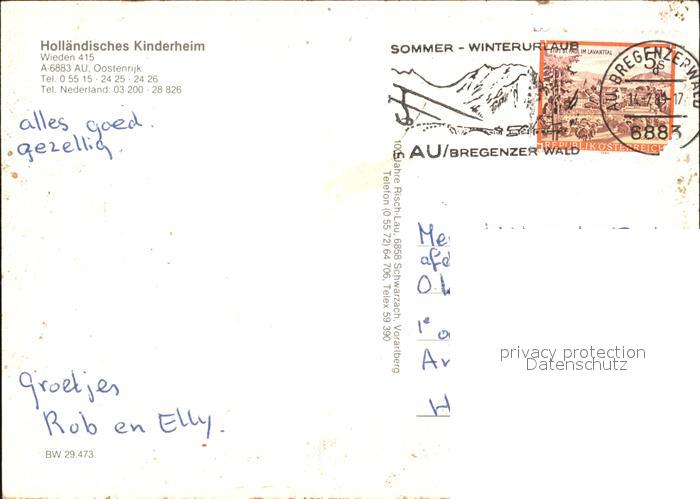 Holländisches Kinderheim
Wieden 415
A-6883 AU, Oostenrijk
Tel. 0 55 15 - 24 25 - 24 26
Tel. Nederland: 03 200 - 28 826
alles goed.
gezellig.
Groetjes
Rob en Elly.
BW 29.473
100 Jahre Risch-Lau, 6858 Schwarzach, Vorarlberg
Telefon (0 55 72) 64 706, Telex 59 390
SOMMER - WINTERURLAUB
AU/BREGENZER WALD
STIFT ST. PAUL IM LAVANTTAL
5S
REPUBLIK ÖSTERREICH
AU, BREGENZERWALD
6883
privacy protection
Datenschutz